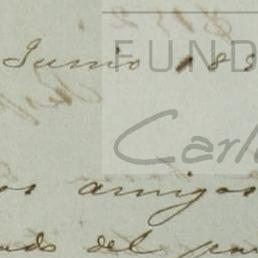 Junio 188
FUND
Carl
os amigos
ado del par